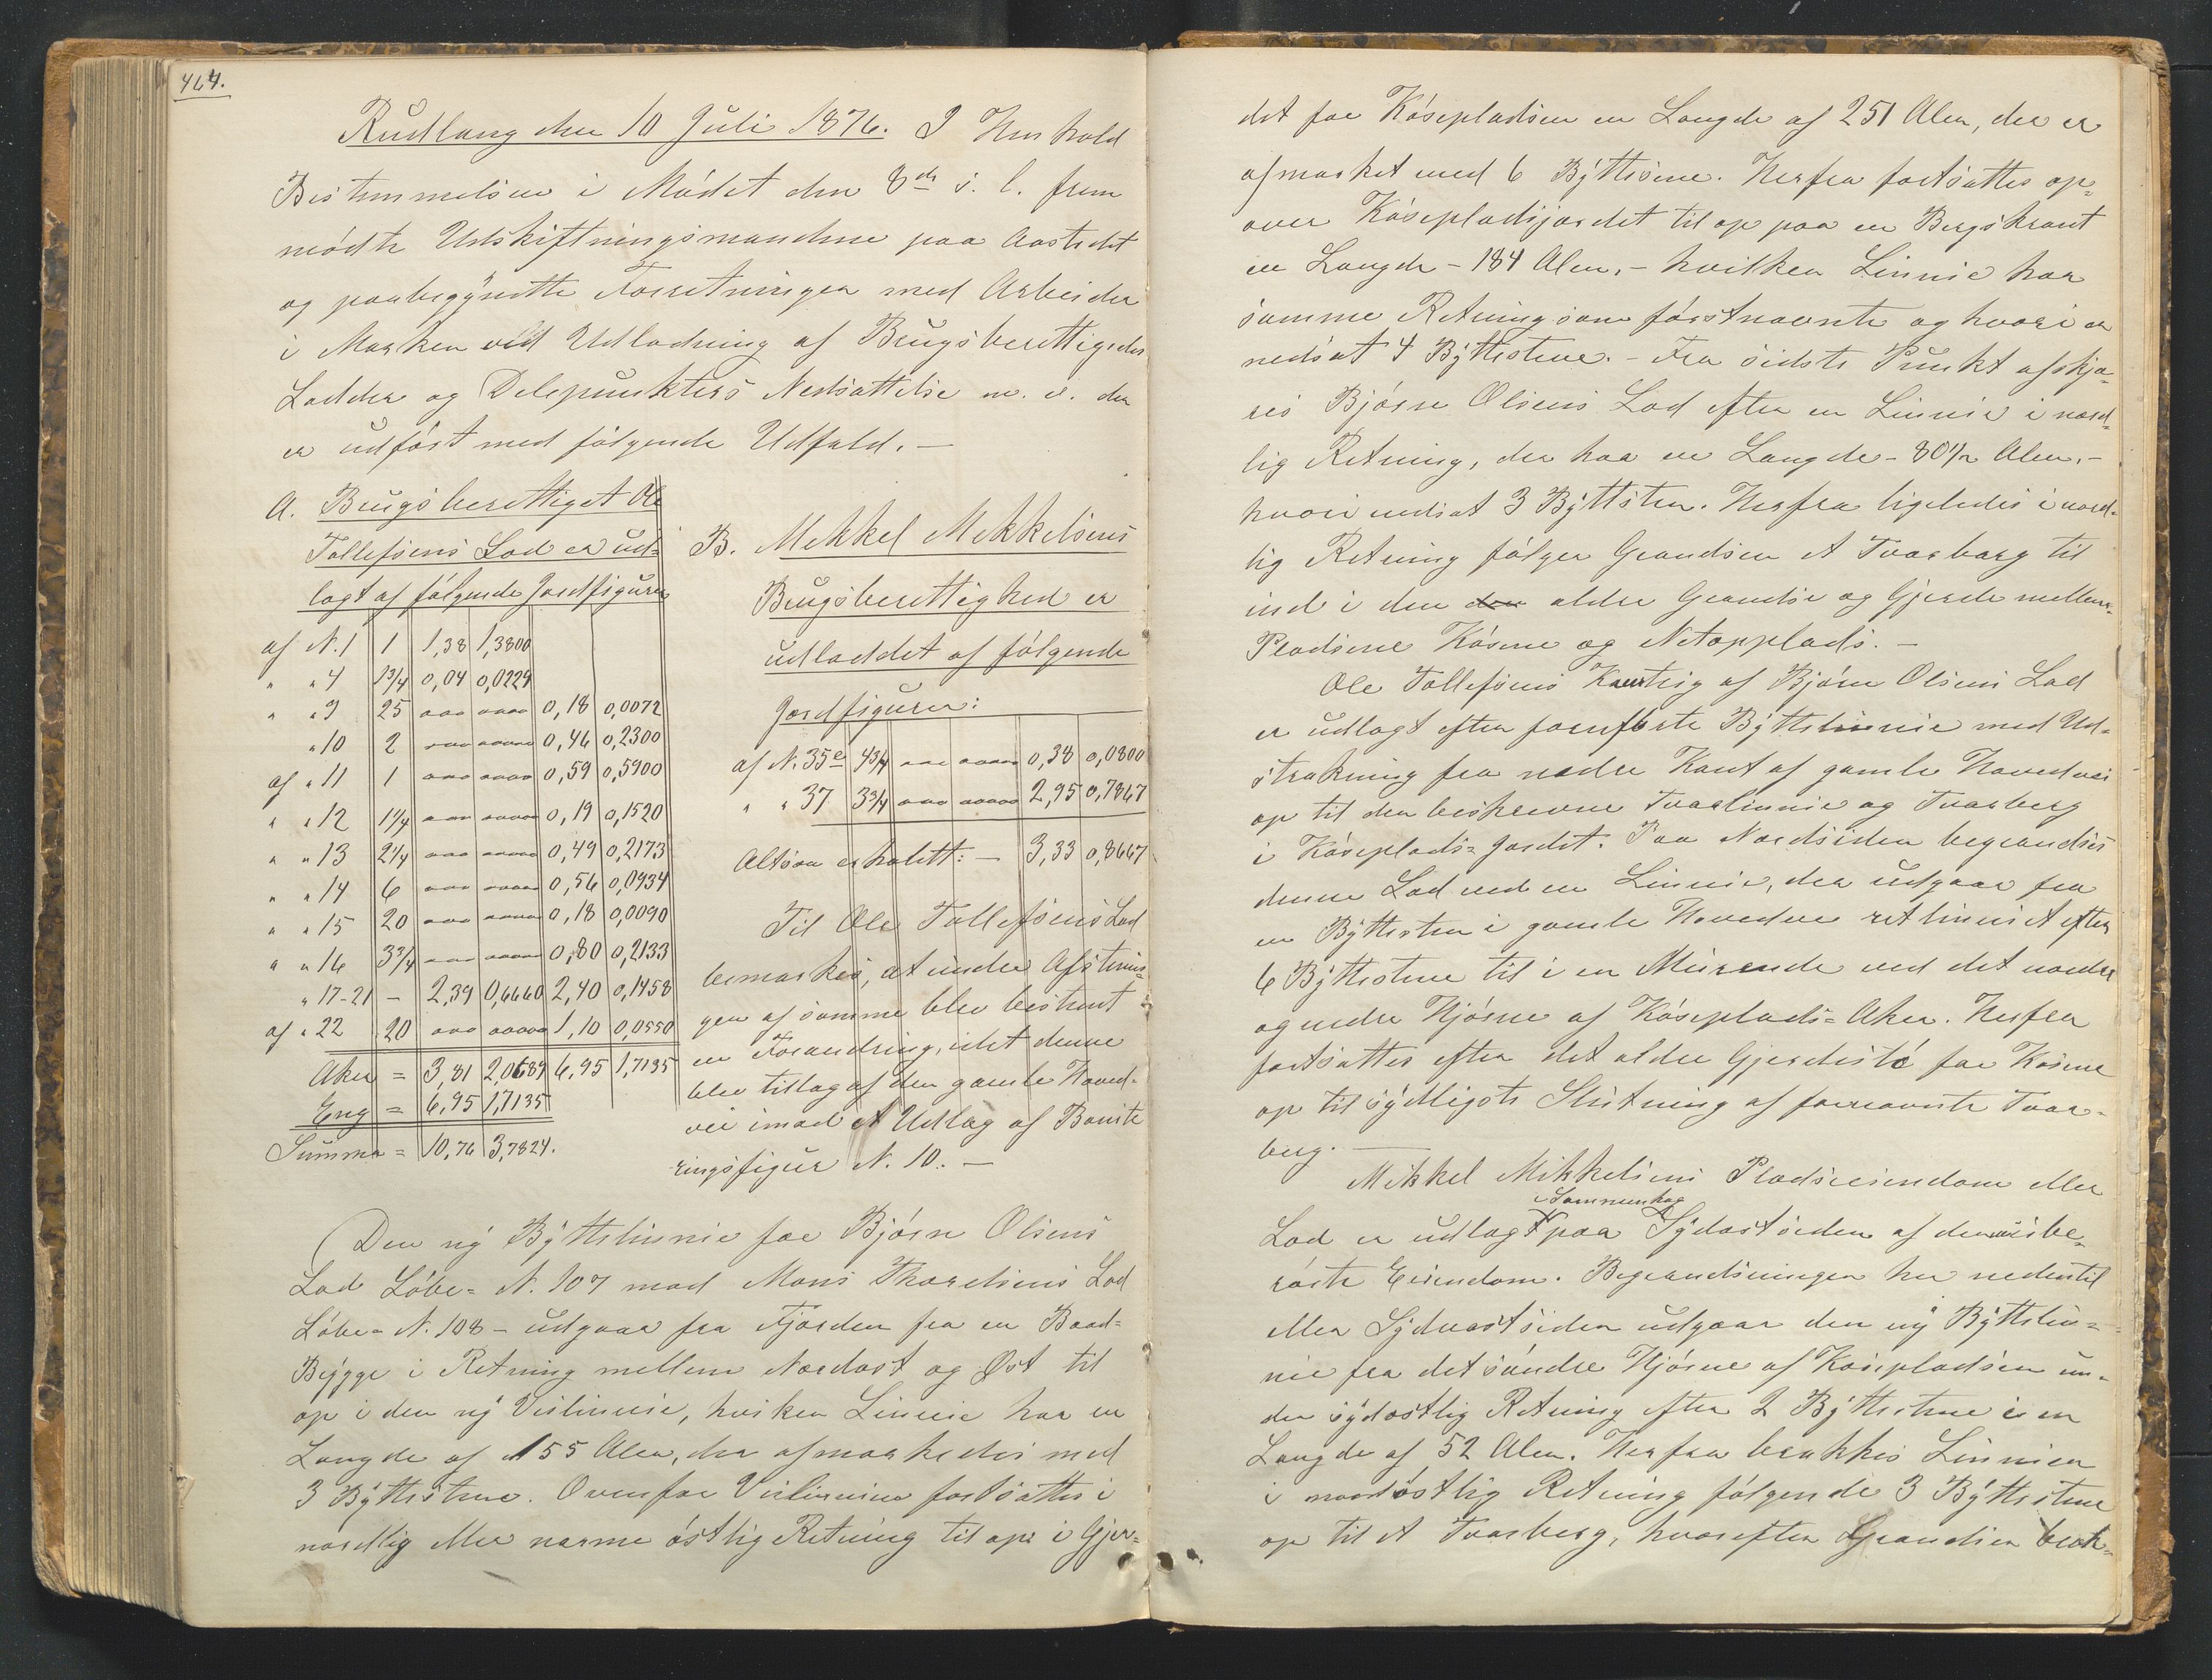 464.
Rudlang den 10 Juli 1876. I Henhold
Bestemmelsen i Mödet den 8de s. l. frem
mödte Udskiftningsmændene paa Aastedet
og paabegyndte Forretningen med Arbeider
i Marken ved Udlodning af Brugsberettigedes
Lodder og Delepunkters Nedsættelse m. v. der
er udfört med fölgende Udfald. —
A. Brugsberettiget Ole
Tollefsens Lod er ud-
lagt af fölgende Jordfigurer
af N. 1 | 1 | 1,38 | 1,3800
" " 4 | 1 3/4 | 0,04 | 0,0229
" " 9 | 25 | ooo | oooo | 0,18 | 0,0072
" 10 | 2 | ooo | oooo | 0,46 | 0,2300
af " 11 | 1 | ooo | oooo | 0,59 | 0,5900
" " 12 | 1 1/4 | ooo | oooo | 0,19 | 0,1520
" " 13 | 2 1/4 | ooo | oooo | 0,49 | 0,2173
" " 14 | 6 | ooo | oooo | 0,56 | 0,0934
" " 15 | 20 | ooo | oooo | 0,18 | 0,0090
" " 16 | 3 3/4 | ooo | oooo | 0,80 | 0,2133
" 17-21 | - | 2,39 | 0,6660 | 2,40 | 0,1458
af " 22 | 20 | ooo | ooooo | 1,10 | 0,0550
Aker = | 3,81 | 2,0689 | 6,95 | 1,7135
Eng = | 6,95 | 1,7135
Summa = | 10,76 | 3,7824.
B. Mekkel Mekkelsens
Brugsberettighed er
udloddet af fölgende
Jordfigurer:
af N. 35 e | 4 3/4 | ooo | ooooo | 0,38 | 0,0800
" " 37 | 3 3/4 | ooo | ooooo | 2,95 | 0,7867
Altsaa erholdt: — | 3,33 | 0,8667
Til Ole Tollefsens Lod
bemærkes, at under Afstikning-
gen af samme blev bestemt
en Forandring, idet denne
blev tillag af den gamle Hoved-
vei imod et Udlæg af Bonite
ringsfigur N. 10. —
Den ny Byttelinnie for Björn Olsens
Lod Löbe- N. 107 mod Mons Thordsens Lod
Löbe- N. 108 - udgaar fra Fjorden fra en Baad-
Bygge i Retning mellem Nordost og Øst til
op i den ny Veilinnie, hvilken Linnie har en
Længde af 155 Alen, der afmærkedes med
3 Byttestene. Ovenfor Veilinnien fortsættes i
nordlig eller nærme östlig Retning til op i Gjer-
det for Kösepladsen en Længde af 251 Alen, der er
afmærket med 6 Byttestene. Herfra fortsættes op-
over Kösepladsjordet til op paa en Bergskrænt
en Længde - 184 Alen. - hvilken Linnie har
samme Retning som förstnævnte og hvori er
nedsat 4 Byttestene. - Fra sidste Punkt afskjæ-
res Björn Olsens Lod efter en Linnie i nord-
lig Retning, der har en Længde - 80 1/2 Alen. -
hvori nedsat 3 Byttesten. Herfra ligeledes i nord-
lig Retning fölger Grændsen et Tværberg til
ind i den den ældre Grændse og Gjerde mellem
Pladsene Kösene og Netopplads. -
Ole Tollefsens af Björn Olsens Lod
er udlagt efter foranförte Byttelinnie med Ud-
strækning fra nedre Kant af gamle Hovedvei
op til den beskrevne Tværlinnie og Tværberg
i Köseplads-Jordet. Paa Nordsiden begrændses
denne Lod ved en Linnie, der udgaar fra
en Byttesten i gamle Hovedvei ret linniet efter
6 Byttestene til i en Murende ved det nordre
og nedre Hjörne af Köseplads-Aker. Herfra
fortsættes efter det ældre Gjerdestö for Kösene
op til sydligste Slutning af forenævnte Tvær-
berg. —
Mikkel Mikkelsens Pladseiendom eller
Lod er udlagt i Sammenhæng paa Sydostsiden af den
rörte Eiendom. Begrændsningen her nedentil
eller Sydvestsiden udgaar den ny Byttelin-
nie fra det söndre Hjörne af Kösepladsen un-
der sydostlig Retning efter 2 Byttestene i en
Længde af 52 Alen. Herfra brækkes Linnien
i nordöstlig Retning fölgende 3 Byttestene
op til et Tværberg, hvorefter Grændsen bræk-